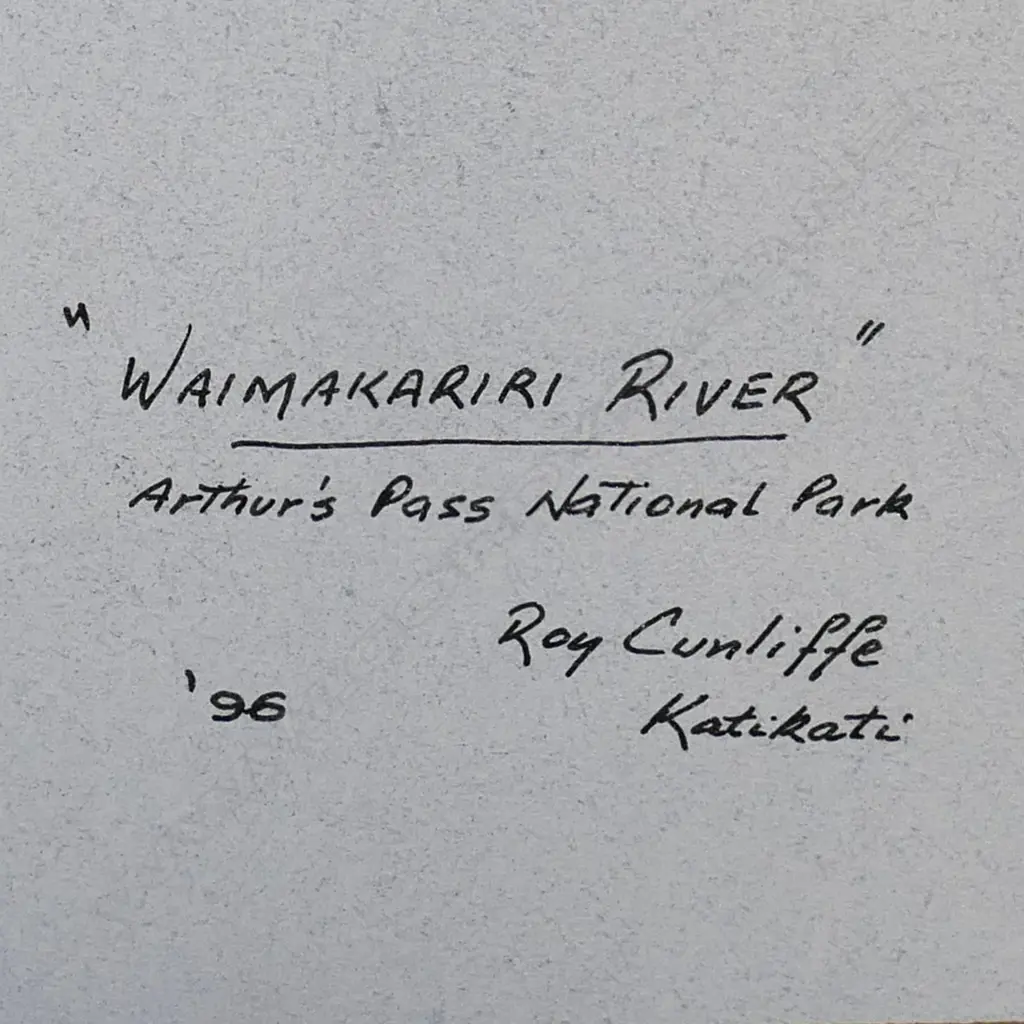 "WAIMAKARIRI RIVER"
Arthur's Pass National Park
Roy Cunliffe
'96
Katikati